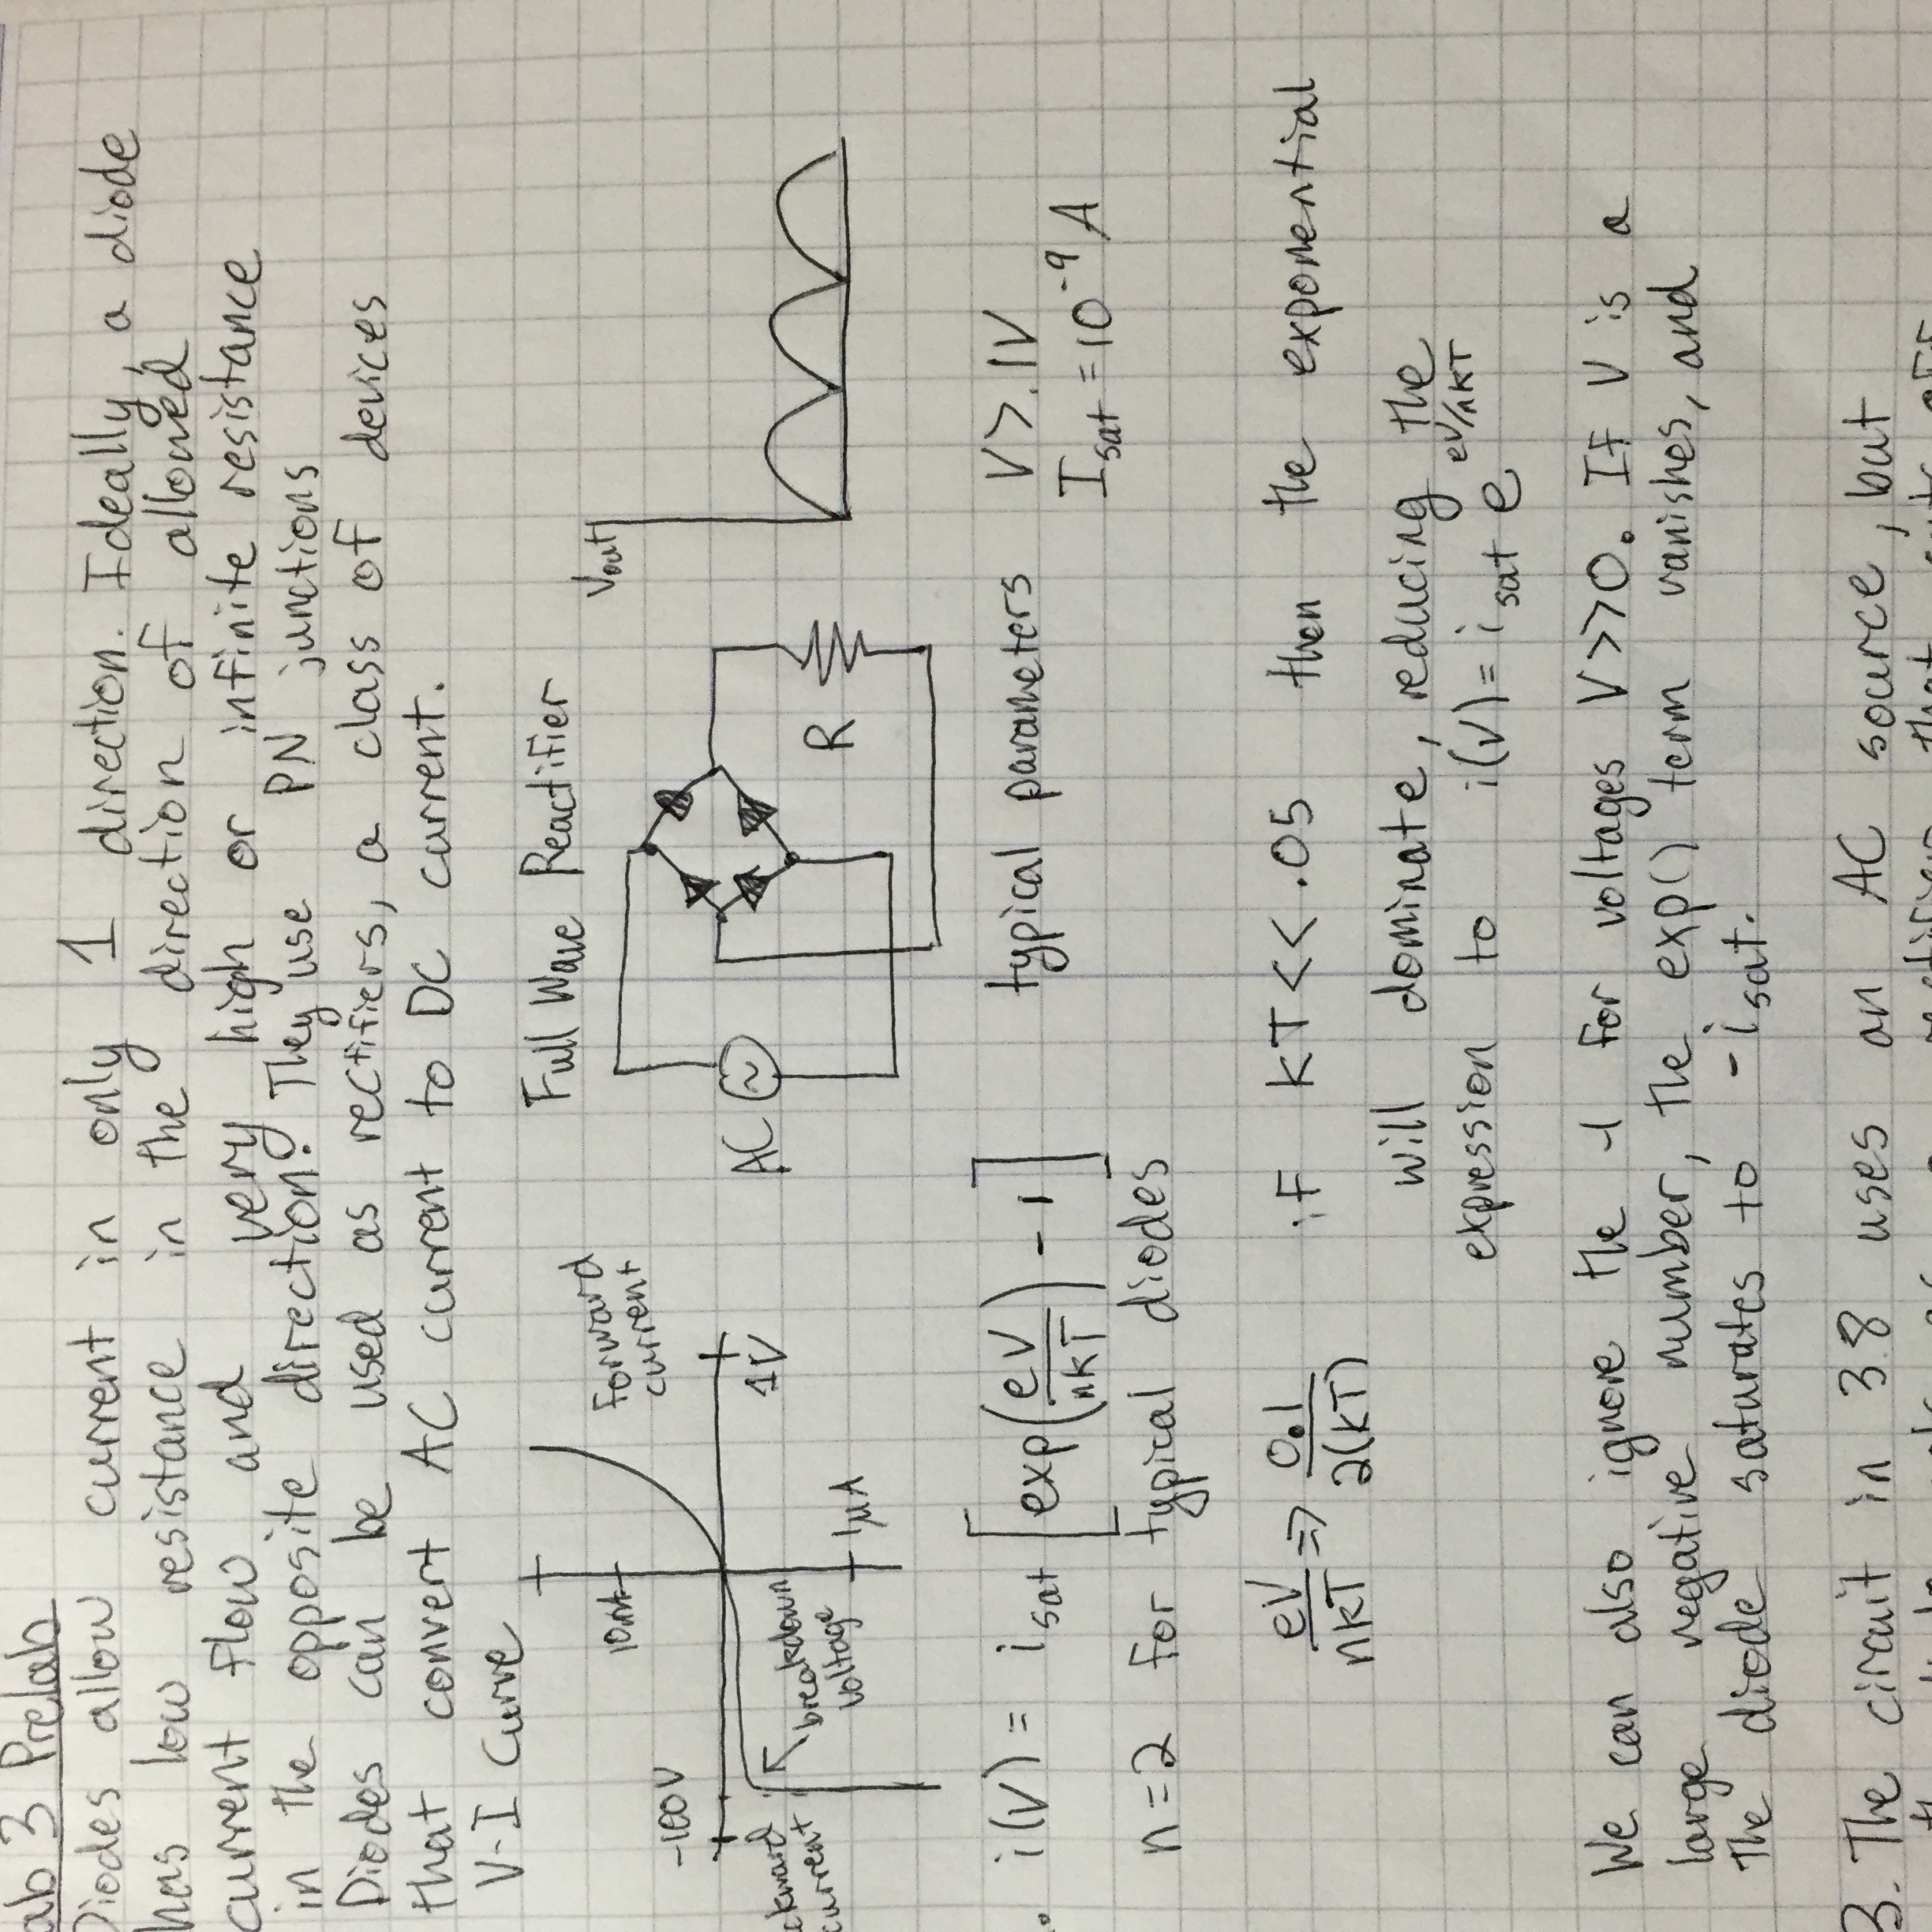 ab 3 Prelab
Diodes allow current in only 1 direction. Ideally, a diode
has low resistance in the direction of allowed
current flow and very high or infinite resistance
in the opposite direction. They use PN junctions
Diodes can be used as rectifiers, a class of devices
that convert AC current to DC current.
V-I Curve
Full Wave Reactifier
10mA
forward
current
-100V
1V
ckward
current
breakdown
voltage
1μA
AC
R
Vout
i(V) = i sat [exp(eV/nkT) - 1] typical parameters V>.1V
Isat = 10^-9 A
n=2 for typical diodes
eV/nkT => 0.1/2(kT) if kT << .05 then the exponential
will dominate, reducing the
expression to i(V) = i sat e^eV/nkT
We can also ignore the -1 for voltages V>>0. If V is a
large negative number, the exp() term vanishes, and
the diode saturates to -i sat.
3. The circuit in 3.8 uses an AC source, but